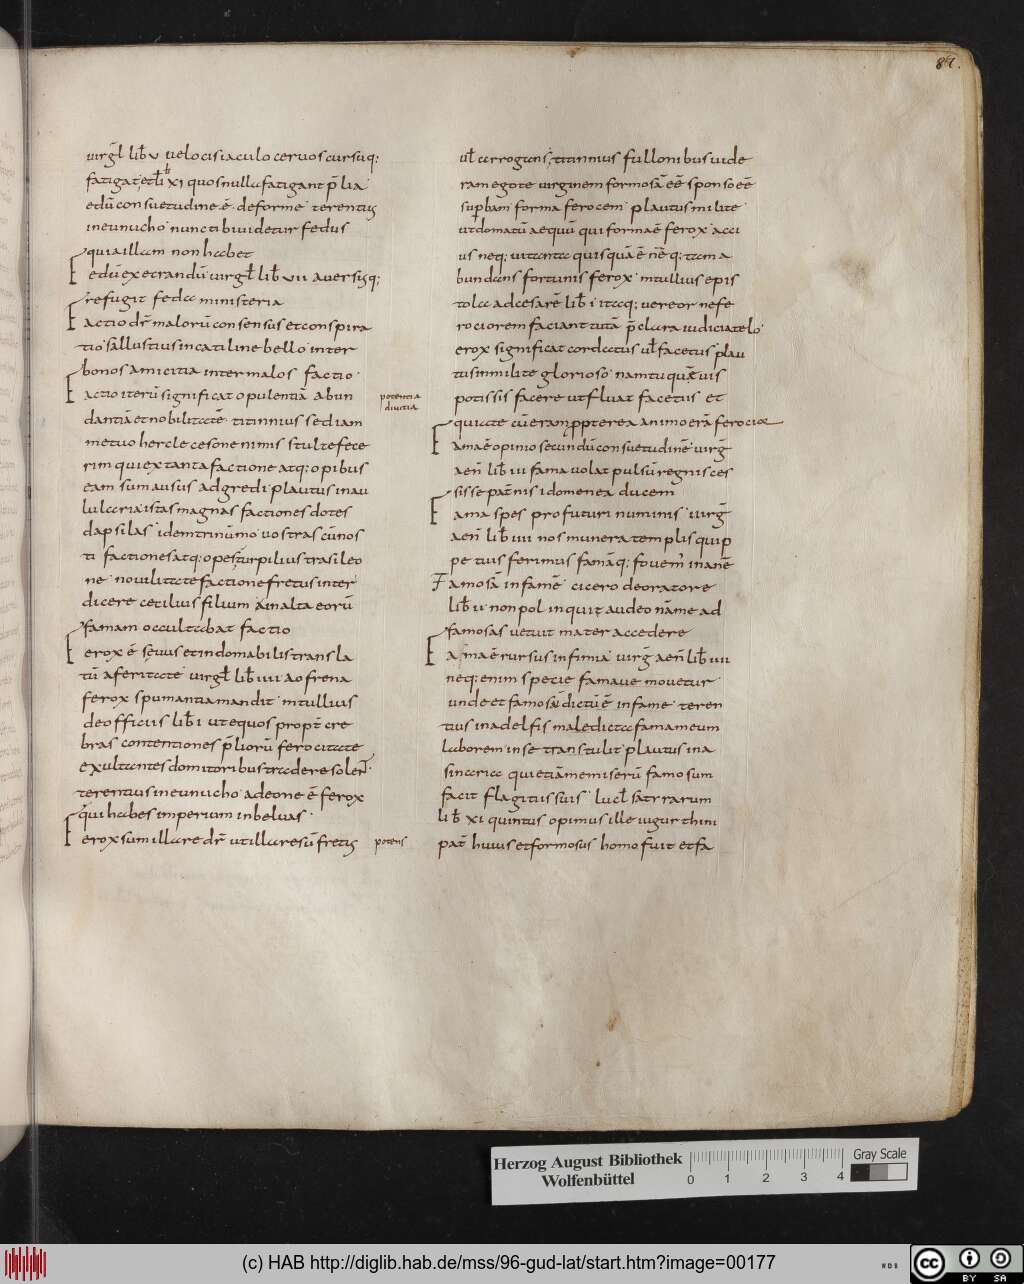 87.
virgl̄ lib̄ v velocis iaculo cervos cursuq;
fatigat etl̄i b xi quos nulla fatigant p̄lia
edū consuetudine ē. deforme terentius
in eunucho nunc tibi videtur fedus
quia illam non habet
F edū execrandū virgl̄ lib̄ vii aversusq;
refugit feda ministeria
F actio dr̄ malorū consensus et conspira
tio sallustius in catiline bello inter
bonos amicitia inter malos factio
F actio iterū significat opulentiā abun
potentia
divitia
dantiā et nobilitatē. titinnius sed iam
metuo hercle cesone nimis stulte fece
rim qui ex tanta factione atq; opibus
eam sum ausus adgredi plautus in au
lularia istas magnas factiones dotes
dapsilas idem trinūmo vostras cūnos
ti factiones atq; opes turpilius trasileo
ne novilitate factione fretus inter
dicere cecilius filium ā malta eorū
famam occultabat factio
F erox ē sęvus et indomabilis transla
tū a feritate virgl̄ lib̄ iiii ao frena
ferox spumantia mandit m tullius
de officiis lib̄ i ut equos propt̄ cre
bras contentiones p̄liorū ferocitate
exultantes domitoribus tradere solent
terentius in eunucho adeone ē ferox
q̄ui habes imperium in beluas
F erox sum illare dr̄ ut illaresū fretus
potens
ul̄ arrogans; titinnius fullonibus vide
ram ego te virginem formosā eē sponso eē
sup̄bam forma ferocem plautus milite
ut domatū aequū qui formaē ferox acci
us neq; vitanta quisquā ē n̄ē q; tam a
bundans fortunis ferox m tullius epis
tola ad cesarē lib̄ i itaq; vereor ne fe
rociorem faciant tutā p̄clara iudicia telo
erox significat cordatus ul̄ facetus plau
tus in milite glorioso namtu quē vis
potis sis facere ut fluat facetiis et
quia te cū eram ppterea animo erā ferocior
F amaē opinio secundū consuetudinē virḡ
aen̄ lib̄ iii fama volat pulsū regnis ces
sisse pat̄nis idomenea ducem
F ama spes profuturi numinis virḡ
aen̄ lib̄ iiii nos munera templis quip
pe tuis ferimus famāq; fovem̄ inanē
F amosā infamē cicero de oratore
lib̄ ii non pol inquit audeo nāme ad
famosas vetuit mater accedere
F a maē rursus infimia virḡ aen̄ lib̄ iiii
neq; enim specie famaue movetur
unde et famosū dictū ē infame teren
tius in adelfis maledicta famam eum
laborem in se transtulit plautus in a
sinaria quietiā me miserū famosum
facit flagitiis suis lucl̄ satirarum
lib̄ xi quintus opimus ille iugurthini
pat̄ huius et formosus homo fuit et fa
Herzog August Bibliothek
Wolfenbüttel
0 1 2 3 4
Gray Scale
(c) HAB http://diglib.hab.de/mss/96-gud-lat/start.htm?image=00177
WDB
cc BY SA